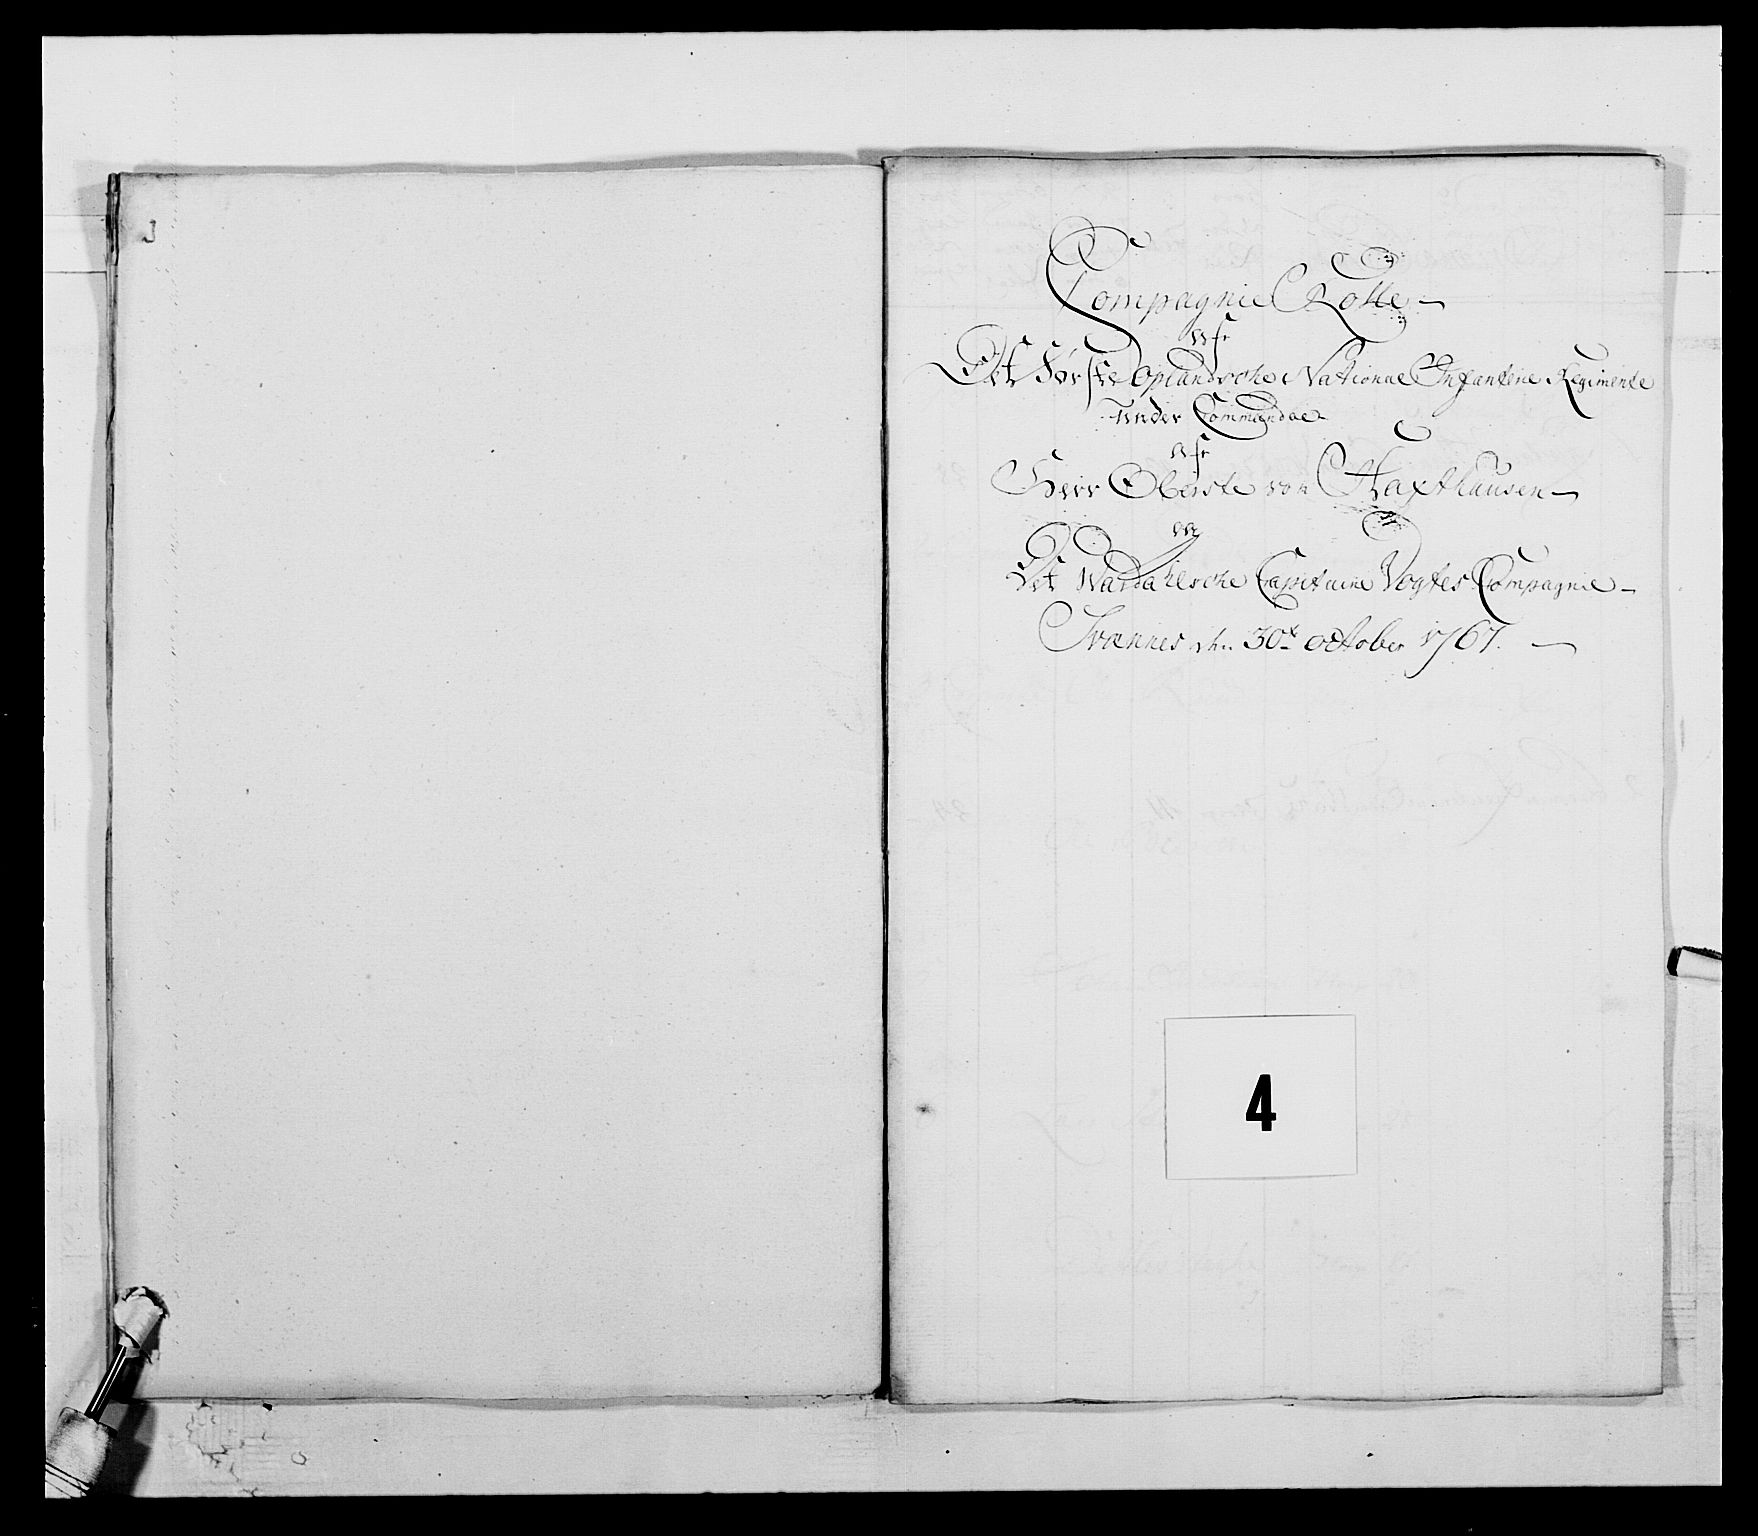 Compagnie Rolle
Af
Det Første Oplandsche National Infanterie Regimente
Under Commandoe
Af
Herr Oberste von Haxthausen
Det Wardahlsche Capitaine Vogtes Compagnie
den 30t October 1767.
4